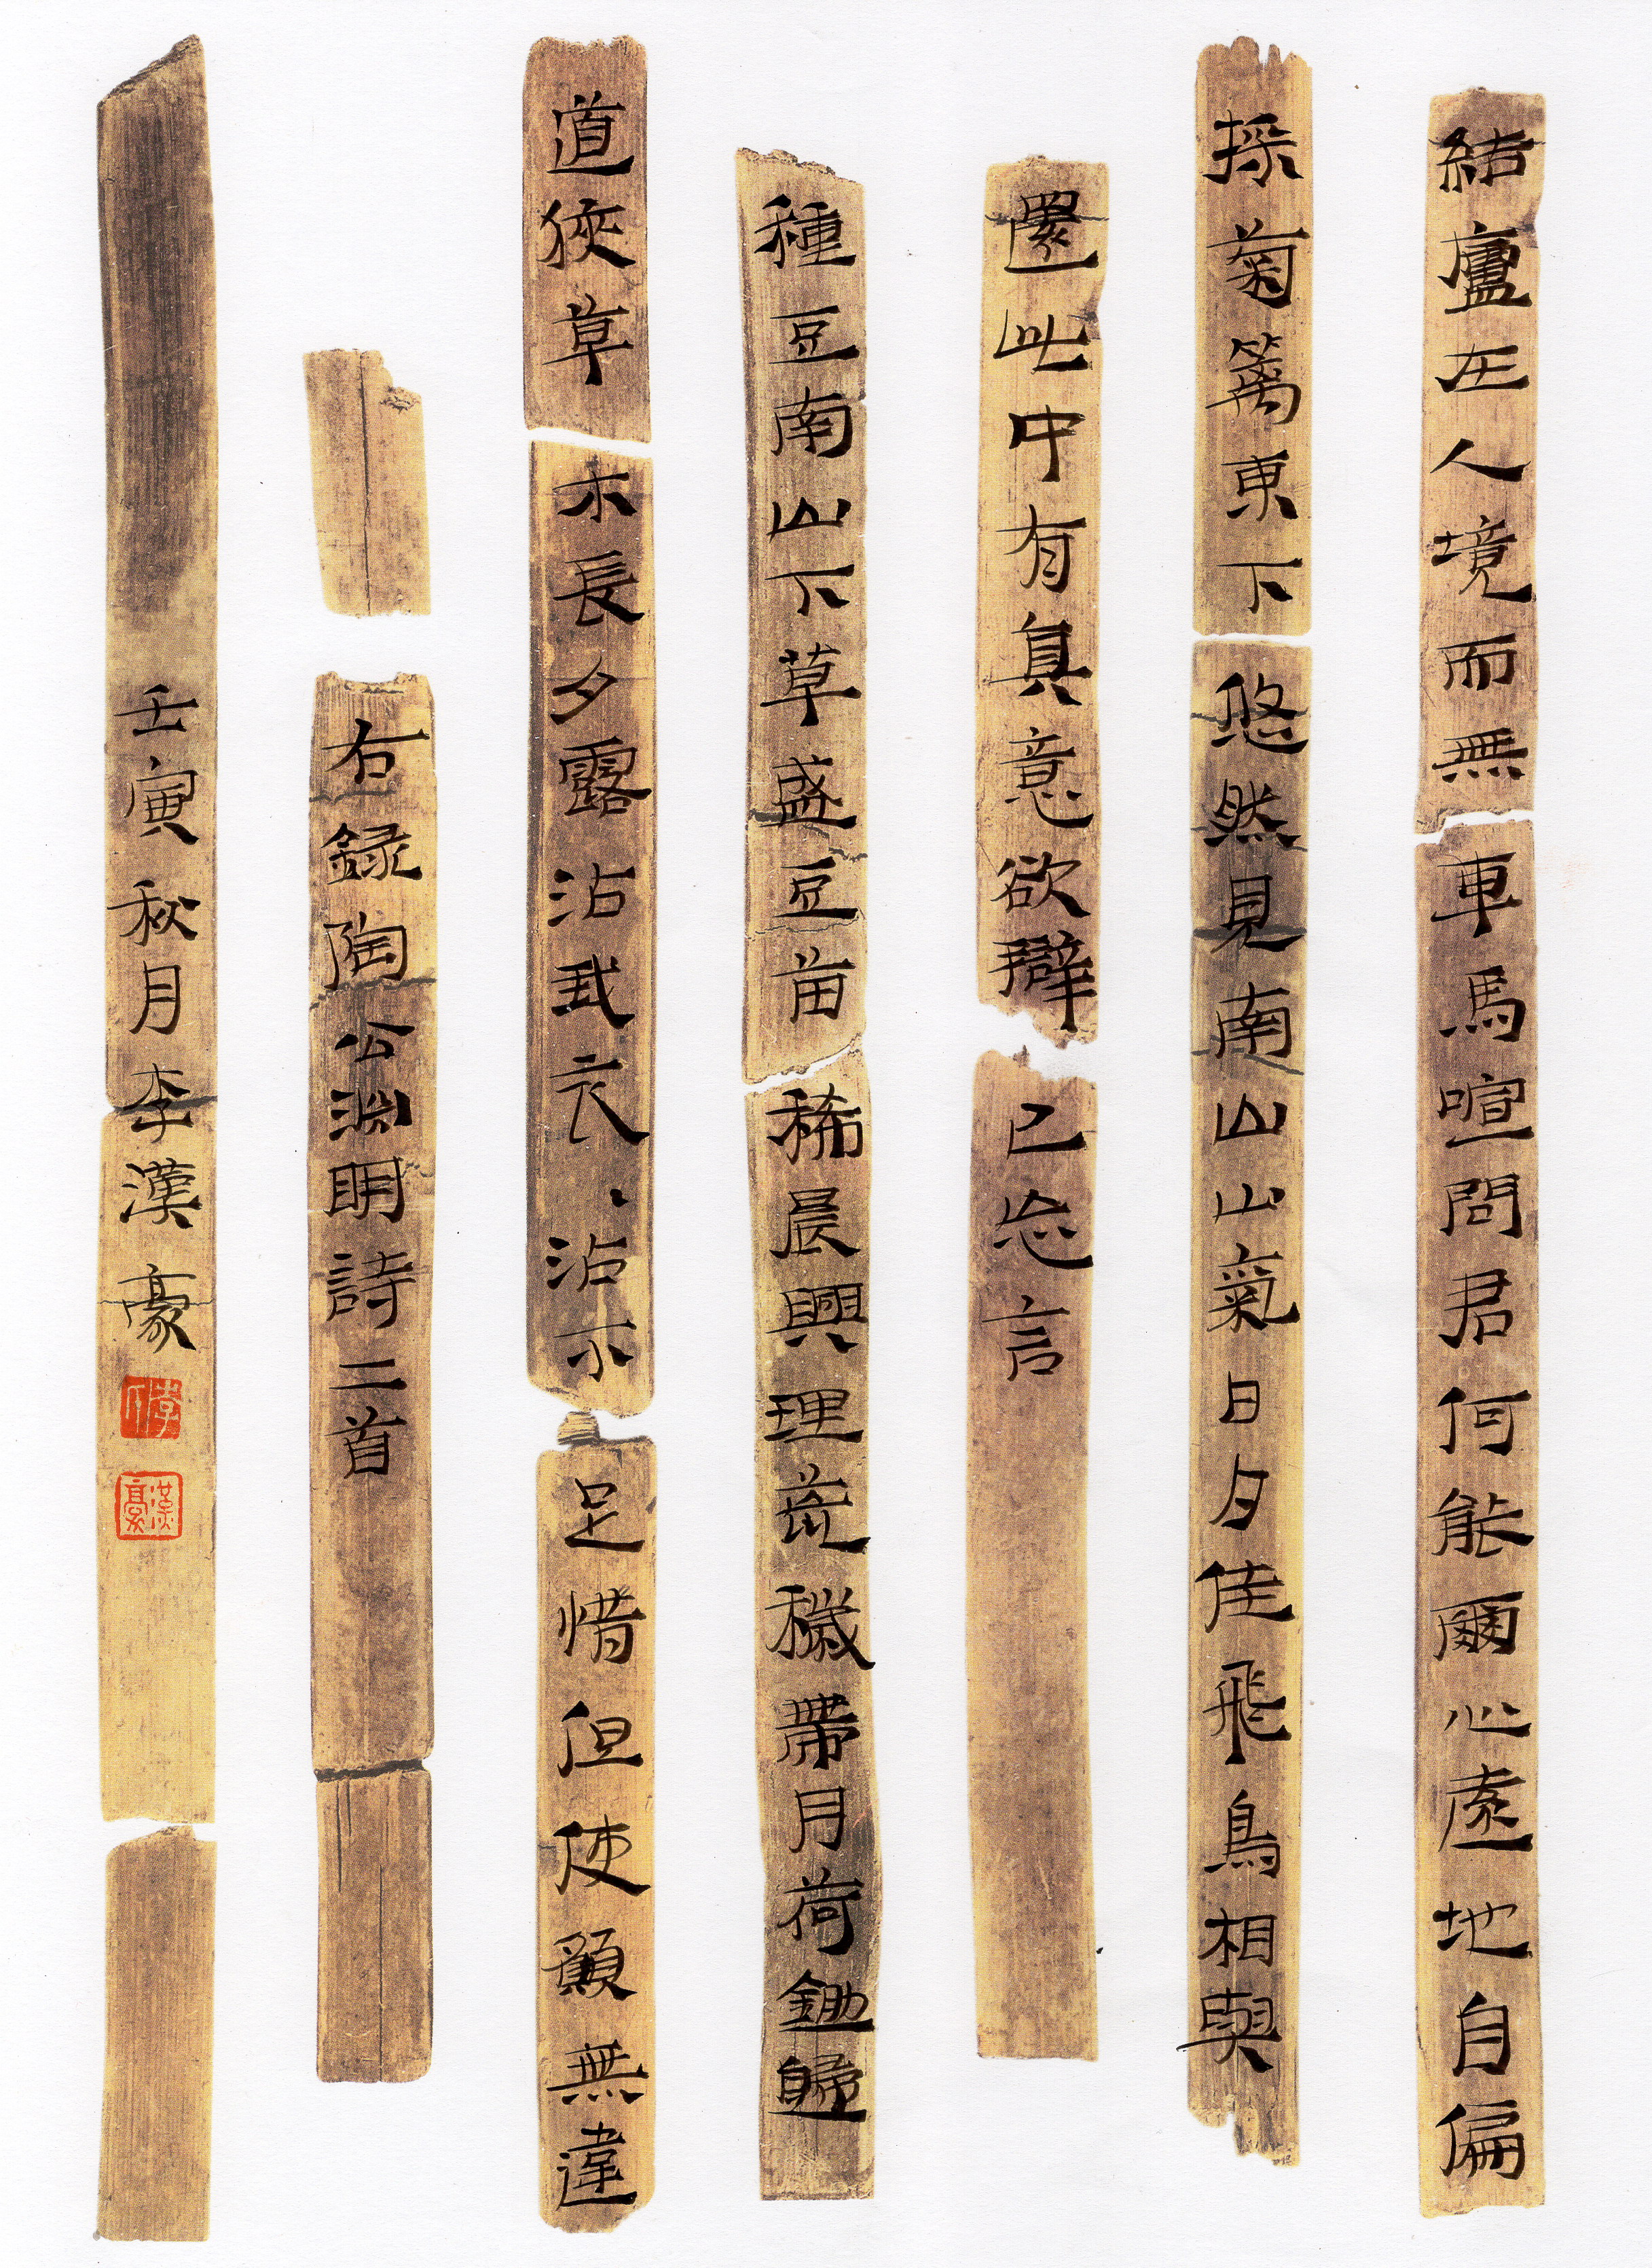 結廬在人境而無車馬喧問君何能爾心遠地自偏
採菊籬東下悠然見南山山氣日夕佳飛鳥相與
還此中有真意欲辯已忘言
種豆南山下草盛豆苗稀晨興理荒穢帶月荷鋤歸
道狹草木長夕露沾我衣衣沾不足惜但使願無違
右錄陶公淵明詩二首
壬寅秋月李漢豪
李
漢豪